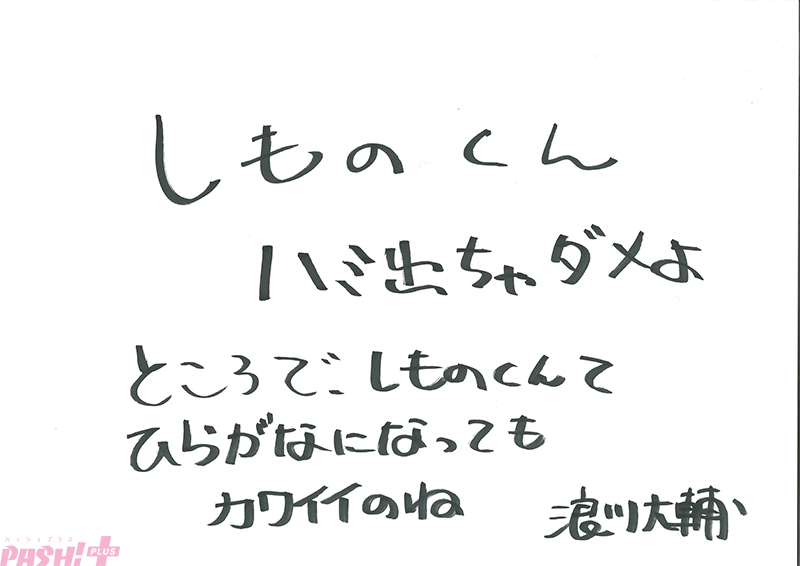 しものくん
ハミ出ちゃダメよ
ところで、しものくんて
ひらがなになっても
カワイイのね
浪川大輔
パッシュプラス
PASH!+
PLUS